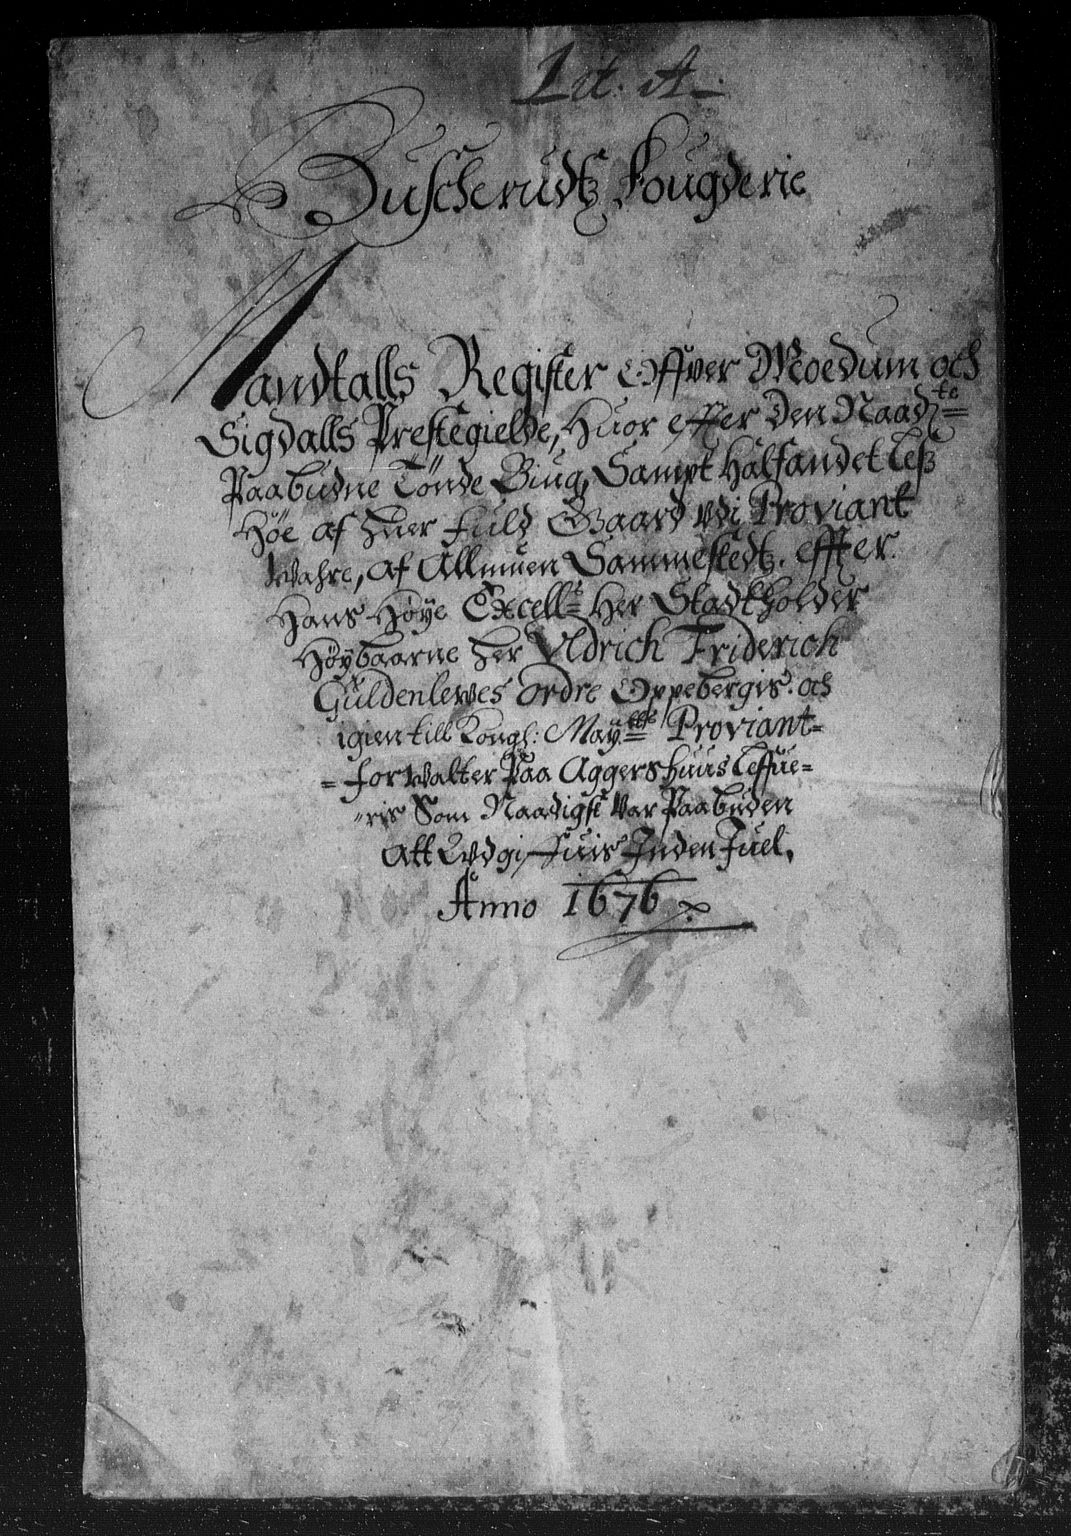 Lit. A.
Buscherudtz Fougderie
Mandtalls Register Offver Moedum och
Sigdalls Prestegielde, Huor effter den Naadte=
Paabudne Tönde Biug, Sampt Halfandet Less
Höe af huer fuld Gaard udi Proviant
Wahre, af Allmuen Sammestedtz. effter
Hans Høye Excells= Her Stadtholder
Høybaarne Her Uldrich Friderich
Guldenlewes Ordre Oppebergis. och
igien till Kongl: Mayttss= Proviant=
=forwalter Paa Aggershuus Leffue=
"ris Som Naadigst Var Paabuden
Att Udgifuis Inden Juel,
Anno 1676